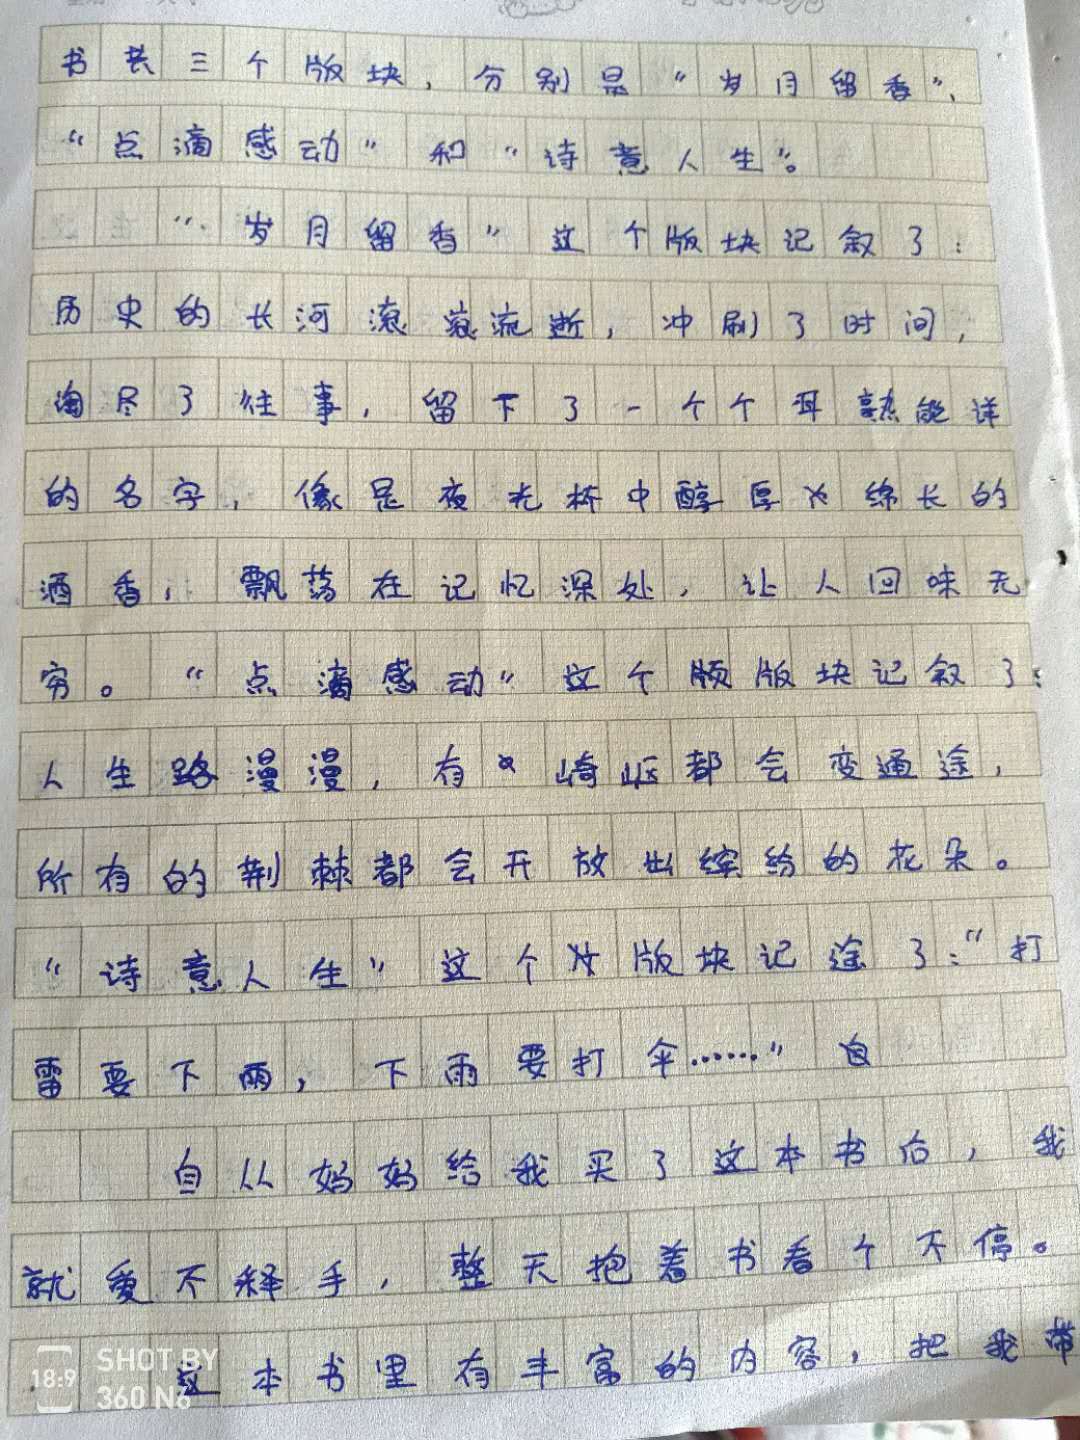 书共三个版块，分别是“岁月留香”、
“点滴感动”和“诗意人生”。
“岁月留香”这个版块记叙了：
历史的长河滚滚流逝，冲刷了时间，
淘尽了往事，留下了一个个耳熟能详
的名字，像是夜光杯中醇厚绵长的
酒香，飘荡在记忆深处，让人回味无
穷。“点滴感动”这个版块记叙了：
人生路漫漫，有崎岖都会变通途，
所有的荆棘都会开放出缤纷的花朵。
“诗意人生”这个版块记途了：“打
雷要下雨，下雨要打伞……”
自从妈妈给我买了这本书后，我
就爱不释手，整天抱着书看个不停。
这本书里有丰富的内容，把我带
18:9 SHOT BY
360 N6